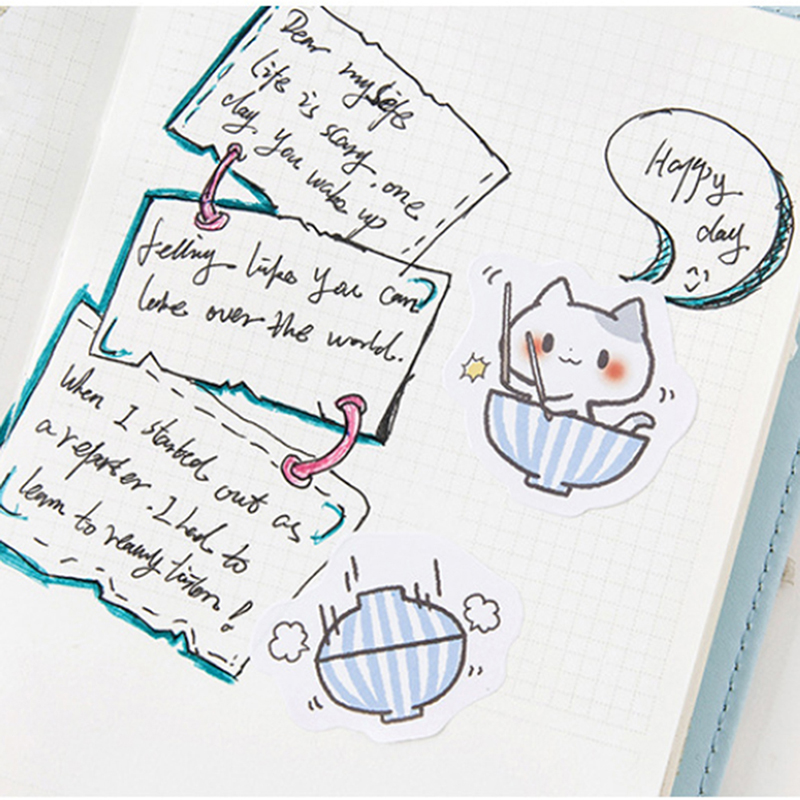 Dear myselfe
Life is scary, one
day you wake up
felling like you can
take over the world.
When I started out as
a reporter. I had to
learn to really listen!
Happy
day